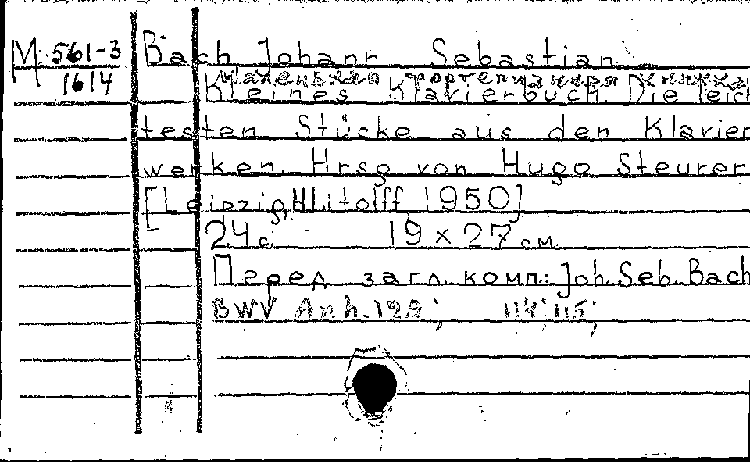 М: 561-3
1614
Bach Johann Sebastian
Маленькая фортепианная книжка
Kleines Klavierbuch. Die leich
testen Stücke aus den Klavier
werken. Hrsg von Hugo Steurer
[Leipzig, H. Litolff, 1950]
24 с. 19 x 27 см
Перед загл. комп.: Joh. Seb. Bach
BWV Anh. 122; 114; 115;